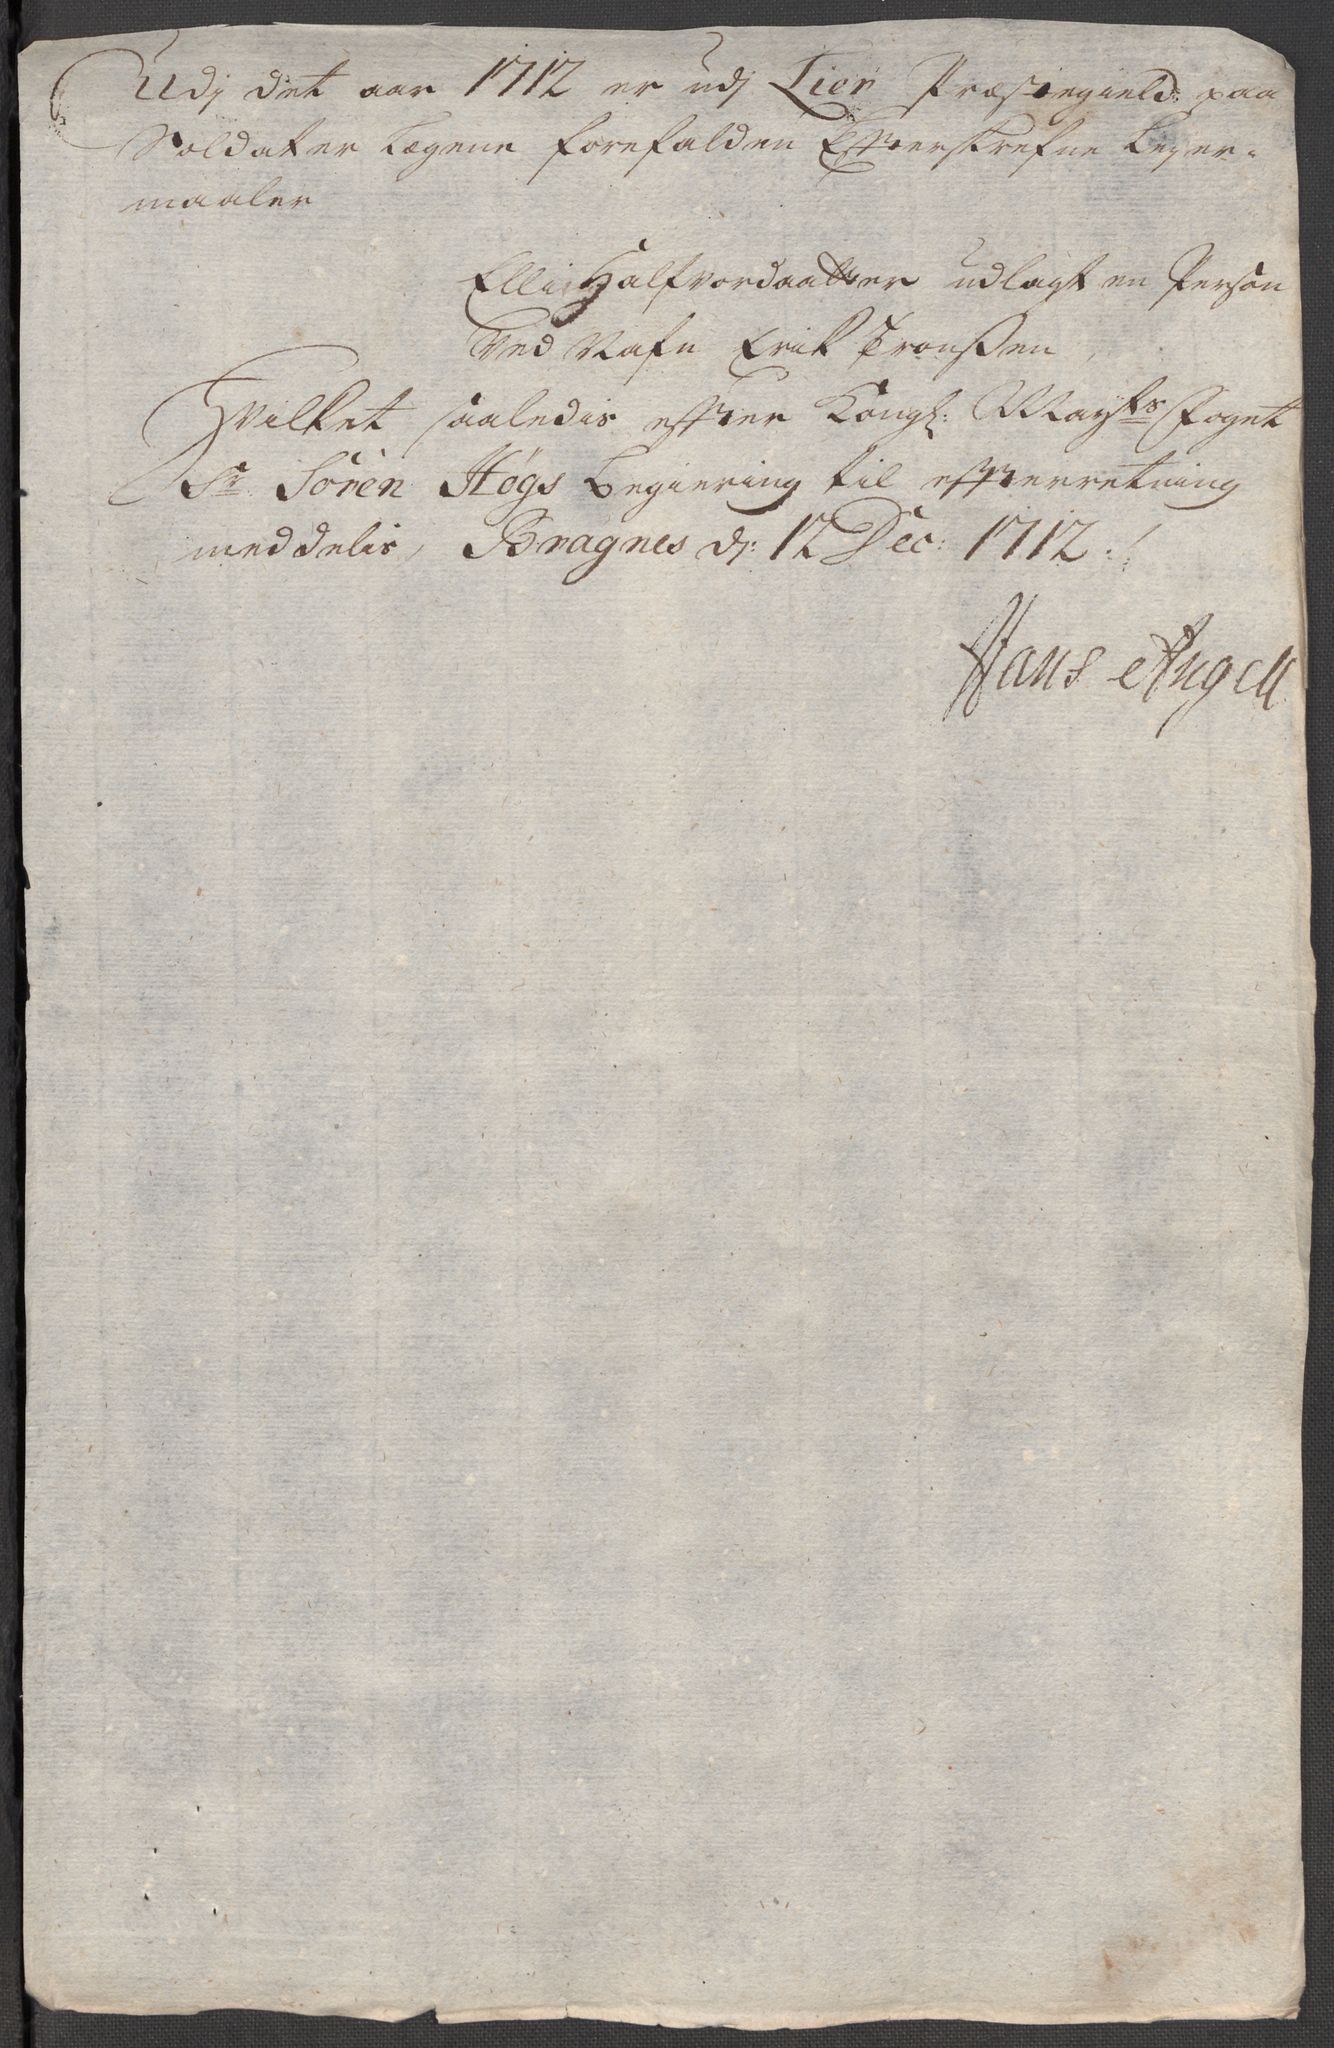 Udj det aar 1712 er udj Lier Præstegield: paa
Soldater Lægene forefalden Efterskrefne Leyer-
maaler
Elli Halfvordaatter udlagt en Person
Ved Nafn Erik
Hvilket saaledis efter Kongl: Mayts Foget
Sr Sören Högs begiering til efterretning
meddelis, Bragnes dj: 12 Dec: 1712 ./
Hans Angell